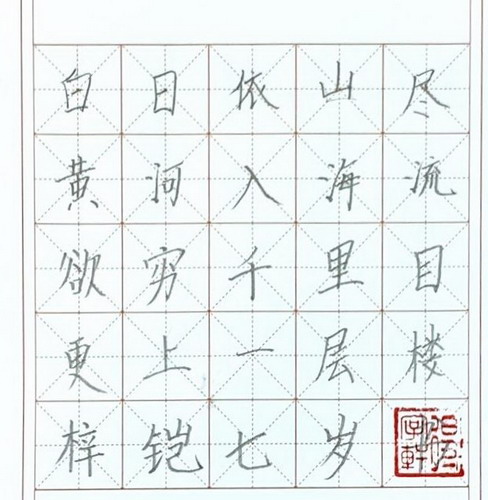 白日依山尽
黄河入海流
欲穷千里目
更上一层楼
梓铠七岁